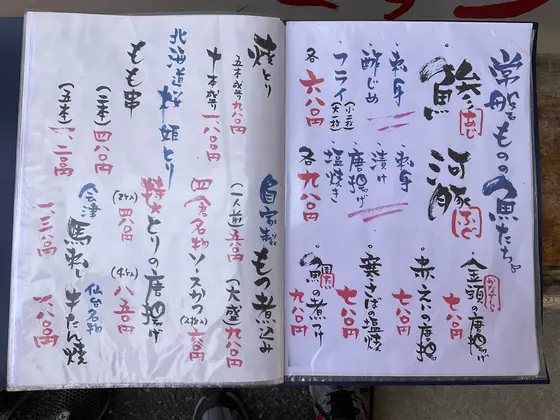 常磐もものの魚たち。
鯵 あじ
・刺身
・酢じめ
・フライ
各 六八〇円
河豚 ふぐ
・刺身
・漬け
・唐揚げ
・塩焼き
各 九八〇円
金頭の唐揚げ
かながしら
七八〇円
赤えいの唐揚
七八〇円
寒さばの塩焼
七八〇円
鯛の煮つけ
九八〇円
焼とり
五本盛り 九八〇円
十本盛り 一八〇〇円
北海道産
もも串
(二本) 四八〇円
(五本)
自家製もつ煮込み
(一人前) 五八〇円
(大盛) 九八〇円
名物ソースかつ
(2枚入)
とりの唐揚げ
(2ケ入) 四八〇円
(4ケ入) 八五〇円
会津
馬刺し
仙台名物
牛たん焼